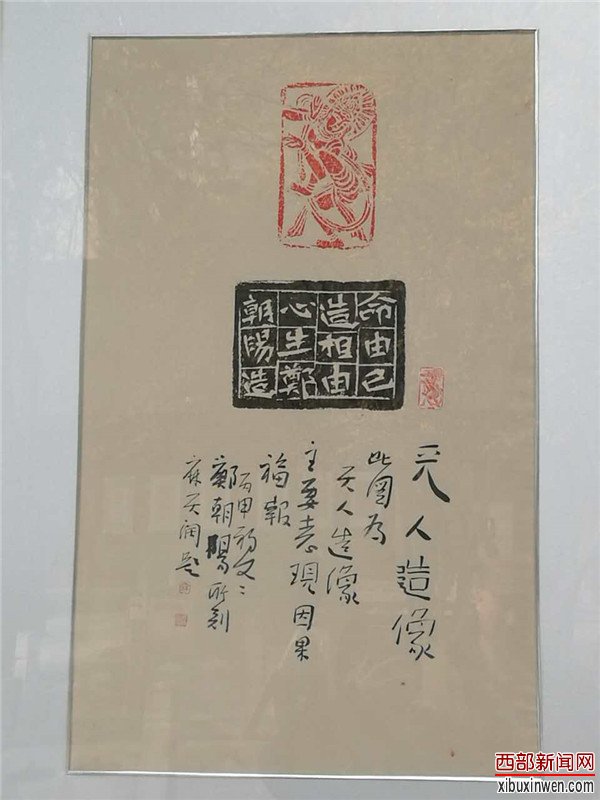 命由己
造相由
心生鄭
朝陽造
天人造像
此圖為
天人造像
主要表現因果
福報
鄭朝陽所刻
麻天阔题
西部新闻网
xibuxinwen.com